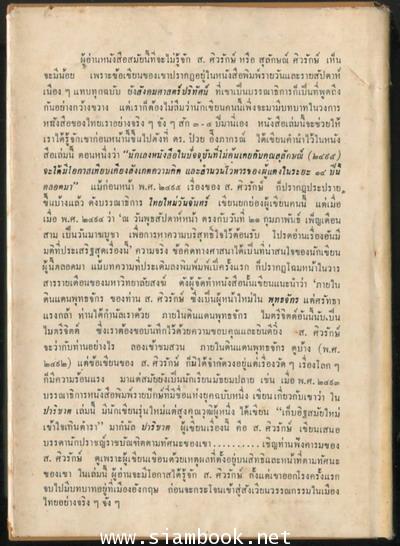 ผู้อ่านหนังสือสมัยนี้ที่จะไม่รู้จัก ส. ศิวรักษ์ หรือ สุลักษณ์ ศิวรักษ์ เห็น
จะมีน้อย เพราะข้อเขียนของเขาปรากฏอยู่ในหนังสือพิมพ์รายวันและรายสัปดาห์
เนือง ๆ แทบทุกฉบับ ยิ่งสังคมศาสตร์ปริทัศน์ ที่เขาเป็นบรรณาธิการก็เป็นที่พูดถึง
กันอย่างกว้างขวาง แต่เราก็ต้องไม่ลืมว่านักเขียนคนนี้เพิ่งจะมามีบทบาทในวงการ
หนังสือของไทยเราอย่างจริง ๆ จัง ๆ สัก ๓-๔ ปีมานี่เอง หนังสือเล่มนี้จะช่วยให้
เราได้รู้จักเขาก่อนหน้านี้ขึ้นไปดังที่ ดร. ป๋วย อึ๊งภากรณ์ ได้เขียนคำนำไว้ในหนังสือ
เล่มนี้ ตอนหนึ่งว่า "นักเลงหนังสือในปัจจุบันที่ไม่คุ้นเคยกับคุณสุลักษณ์ (๒๔๙๕)
จะได้มีโอกาสเทียบเคียงสังเกตความคิด และสำนวนโวหารของผู้แต่งในระยะ ๑๔ ปีนี้
ตลอดมา" แม้ก่อนหน้า พ.ศ. ๒๔๙๕ เรื่องของ ส. ศิวรักษ์ ก็ปรากฏประปราย
ขึ้นบ้างแล้ว ดังบรรณาธิการ ไทยใหม่วันจันทร์ เขียนยกย่องผู้เขียนคนนี้ แต่เมื่อ
เมื่อ พ.ศ. ๒๔๙๔ ว่า 'ณ วันพุธสัปดาห์หน้า ตรงกับวันที่ ๒๑ กุมภาพันธ์ เพ็ญเดือน
สาม เป็นวันมาฆบูชา เพื่อการหาความบริสุทธิ์ใจไว้ต้อนรับ โปรดอ่านเรื่องอันมี
มติที่ประเสริฐสุดเรื่องนี้' ความจริง ข้อคิดทางศาสนาได้เป็นที่น่าสนใจของนักเขียน
ผู้นี้ตลอดมา แม้บทความที่ประเดิมลงพิมพ์เป็นครั้งแรก ก็ปรากฏโฉมหน้าในวาร
สารรายเดือนของมหาวิทยาลัยสงฆ์ ดังผู้จัดทำหนังสือนั้นเขียนแนะนำว่า 'ภายใน
ดินแดนพุทธจักร ของท่าน ส. ศิวรักษ์ ซึ่งเป็นผู้หน้าใหม่ใน พุทธจักร แต่ศรัทธา
แรงกล้า ท่านได้กำนัลเราด้วย ภายในดินแดนพุทธจักร ไมตรีจิตต์อันนี้นับเป็น
ไมตรีจิตต์ ซึ่งเราต้องขอบันทึกไว้ด้วยความขอบคุณและยินดียิ่ง ส. ศิวรักษ์
จะว่ากับท่านอย่างไร ลองเข้าชมสวน ภายในดินแดนพุทธจักร ดูบ้าง (พ.ศ.
๒๔๙๒) แต่ข้อเขียนของ ส. ศิวรักษ์ ก็มิได้จำกัดวงอยู่แต่เรื่องวัด ๆ เรื่องโลก ๆ
ก็มีความร้อนแรง มาแต่สมัยยังเป็นนักเรียนมัธยมปลาย เช่น เมื่อ พ.ศ. ๒๔๙๓
บรรณาธิการหนังสือพิมพ์รายปักษ์ที่มีชื่อแห่งยุคฉบับหนึ่ง เขียนเกี่ยวกับเขาว่า ใน
ปาริชาต เล่มนี้ มีนักเขียนรุ่นใหม่แต่สูงคุณวุฒิผู้หนึ่ง ได้เขียน "เก็บอิฐสมัยใหม่
เข้าไซเก้นด์ารา" มากำนัล ปาริชาต ผู้เขียนเรื่องนี้ คือ ส. ศิวรักษ์ เขียนเสนอ
บรรดานักปราชญ์ราชบัณฑิตตามทัศนะของเขา..........เชิญท่านฟังคารมของ
ส. ศิวรักษ์ ดูเพราะผู้เขียนเขียนด้วยเหตุผลที่ตั้งอยู่บนสิทธิและหน้าที่ตามทัศนะ
ของเขา ในเล่มนี้ ผู้อ่านจะมีโอกาสได้รู้จัก ส. ศิวรักษ์ ตั้งแต่เขาออกโรงครั้งแรก
จบไปมีบทบาทอยู่ที่เมืองอังกฤษ ก่อนจะกระโจนเข้าสู่สังเวียนวรรณกรรมในเมือง
ไทยอย่างจริง ๆ จัง ๆ
www.siambook.net